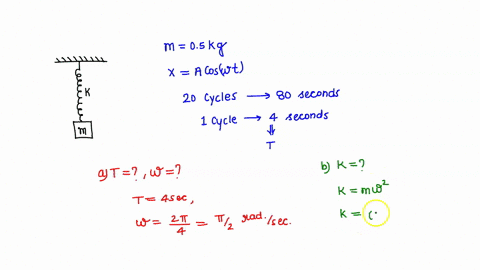 K
m
m = 0.5 kg
x = A cos(ωt)
20 cycles → 80 seconds
1 cycle → 4 seconds
⇓
T
a) T = ?, ω = ?
T = 4 sec,
ω = 2π/4 = π/2 rad./sec.
b) K = ?
K = mω²
K = (